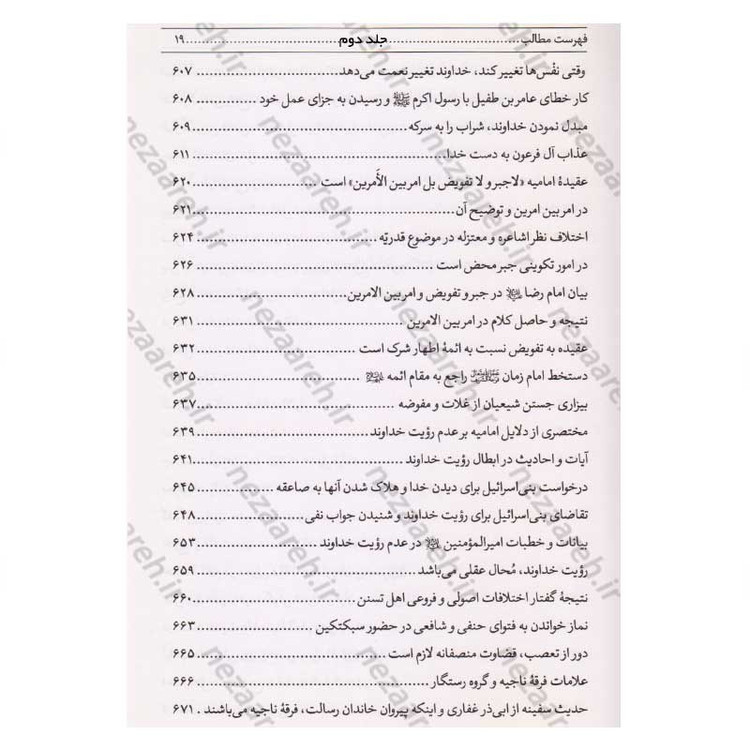 فهرست مطالب ........ جلد دوم ........ ۱۹
وقتی نفْس‌ها تغییر کند، خداوند تغییر نعمت می‌دهد ........ ۶۰۷
کار خطای عامر بن طفیل با رسول اکرم ﷺ و رسیدن به جزای عمل خود ........ ۶۰۸
مبدل نمودن خداوند، شراب را به سرکه ........ ۶۰۹
عذاب آل فرعون به دست خدا ........ ۶۱۱
عقیدهٔ امامیه «لا جبر و لا تفویض بل امر بین الأَمرین» است ........ ۶۲۰
در امر بین امرین و توضیح آن ........ ۶۲۱
اختلاف نظر اشاعره و معتزله در موضوع قدریّه ........ ۶۲۴
در امور تکوینی جبر محض است ........ ۶۲۶
بیان امام رضا در جبر و تفویض و امر بین الامرین ........ ۶۲۸
نتیجه و حاصل کلام در امر بین الامرین ........ ۶۳۱
عقیده به تفویض نسبت به ائمهٔ اطهار شرک است ........ ۶۳۲
دستخط امام زمان راجع به مقام ائمه ........ ۶۳۵
بیزاری جستن شیعیان از غلات و مفوضه ........ ۶۳۷
مختصری از دلایل امامیه بر عدم رؤیت خداوند ........ ۶۳۹
آیات و احادیث در ابطال رؤیت خداوند ........ ۶۴۱
درخواست بنی‌اسرائیل برای دیدن خدا و هلاک شدن آنها به صاعقه ........ ۶۴۵
تقاضای بنی‌اسرائیل برای رؤیت خداوند و شنیدن جواب نفی ........ ۶۴۸
بیانات و خطبات امیرالمؤمنین در عدم رؤیت خداوند ........ ۶۵۳
رؤیت خداوند، مُحال عقلی می‌باشد ........ ۶۵۹
نتیجهٔ گفتار اختلافات اصولی و فروعی اهل تسنن ........ ۶۶۰
نماز خواندن به فتوای حنفی و شافعی در حضور سبکتکین ........ ۶۶۳
دور از تعصب، قضاوت منصفانه لازم است ........ ۶۶۵
علامات فرقهٔ ناجیه و گروه رستگار ........ ۶۶۶
حدیث سفینه از ابی‌ذر غفاری و اینکه پیروان خاندان رسالت، فرقهٔ ناجیه می‌باشند . ۶۷۱
nezaareh.ir